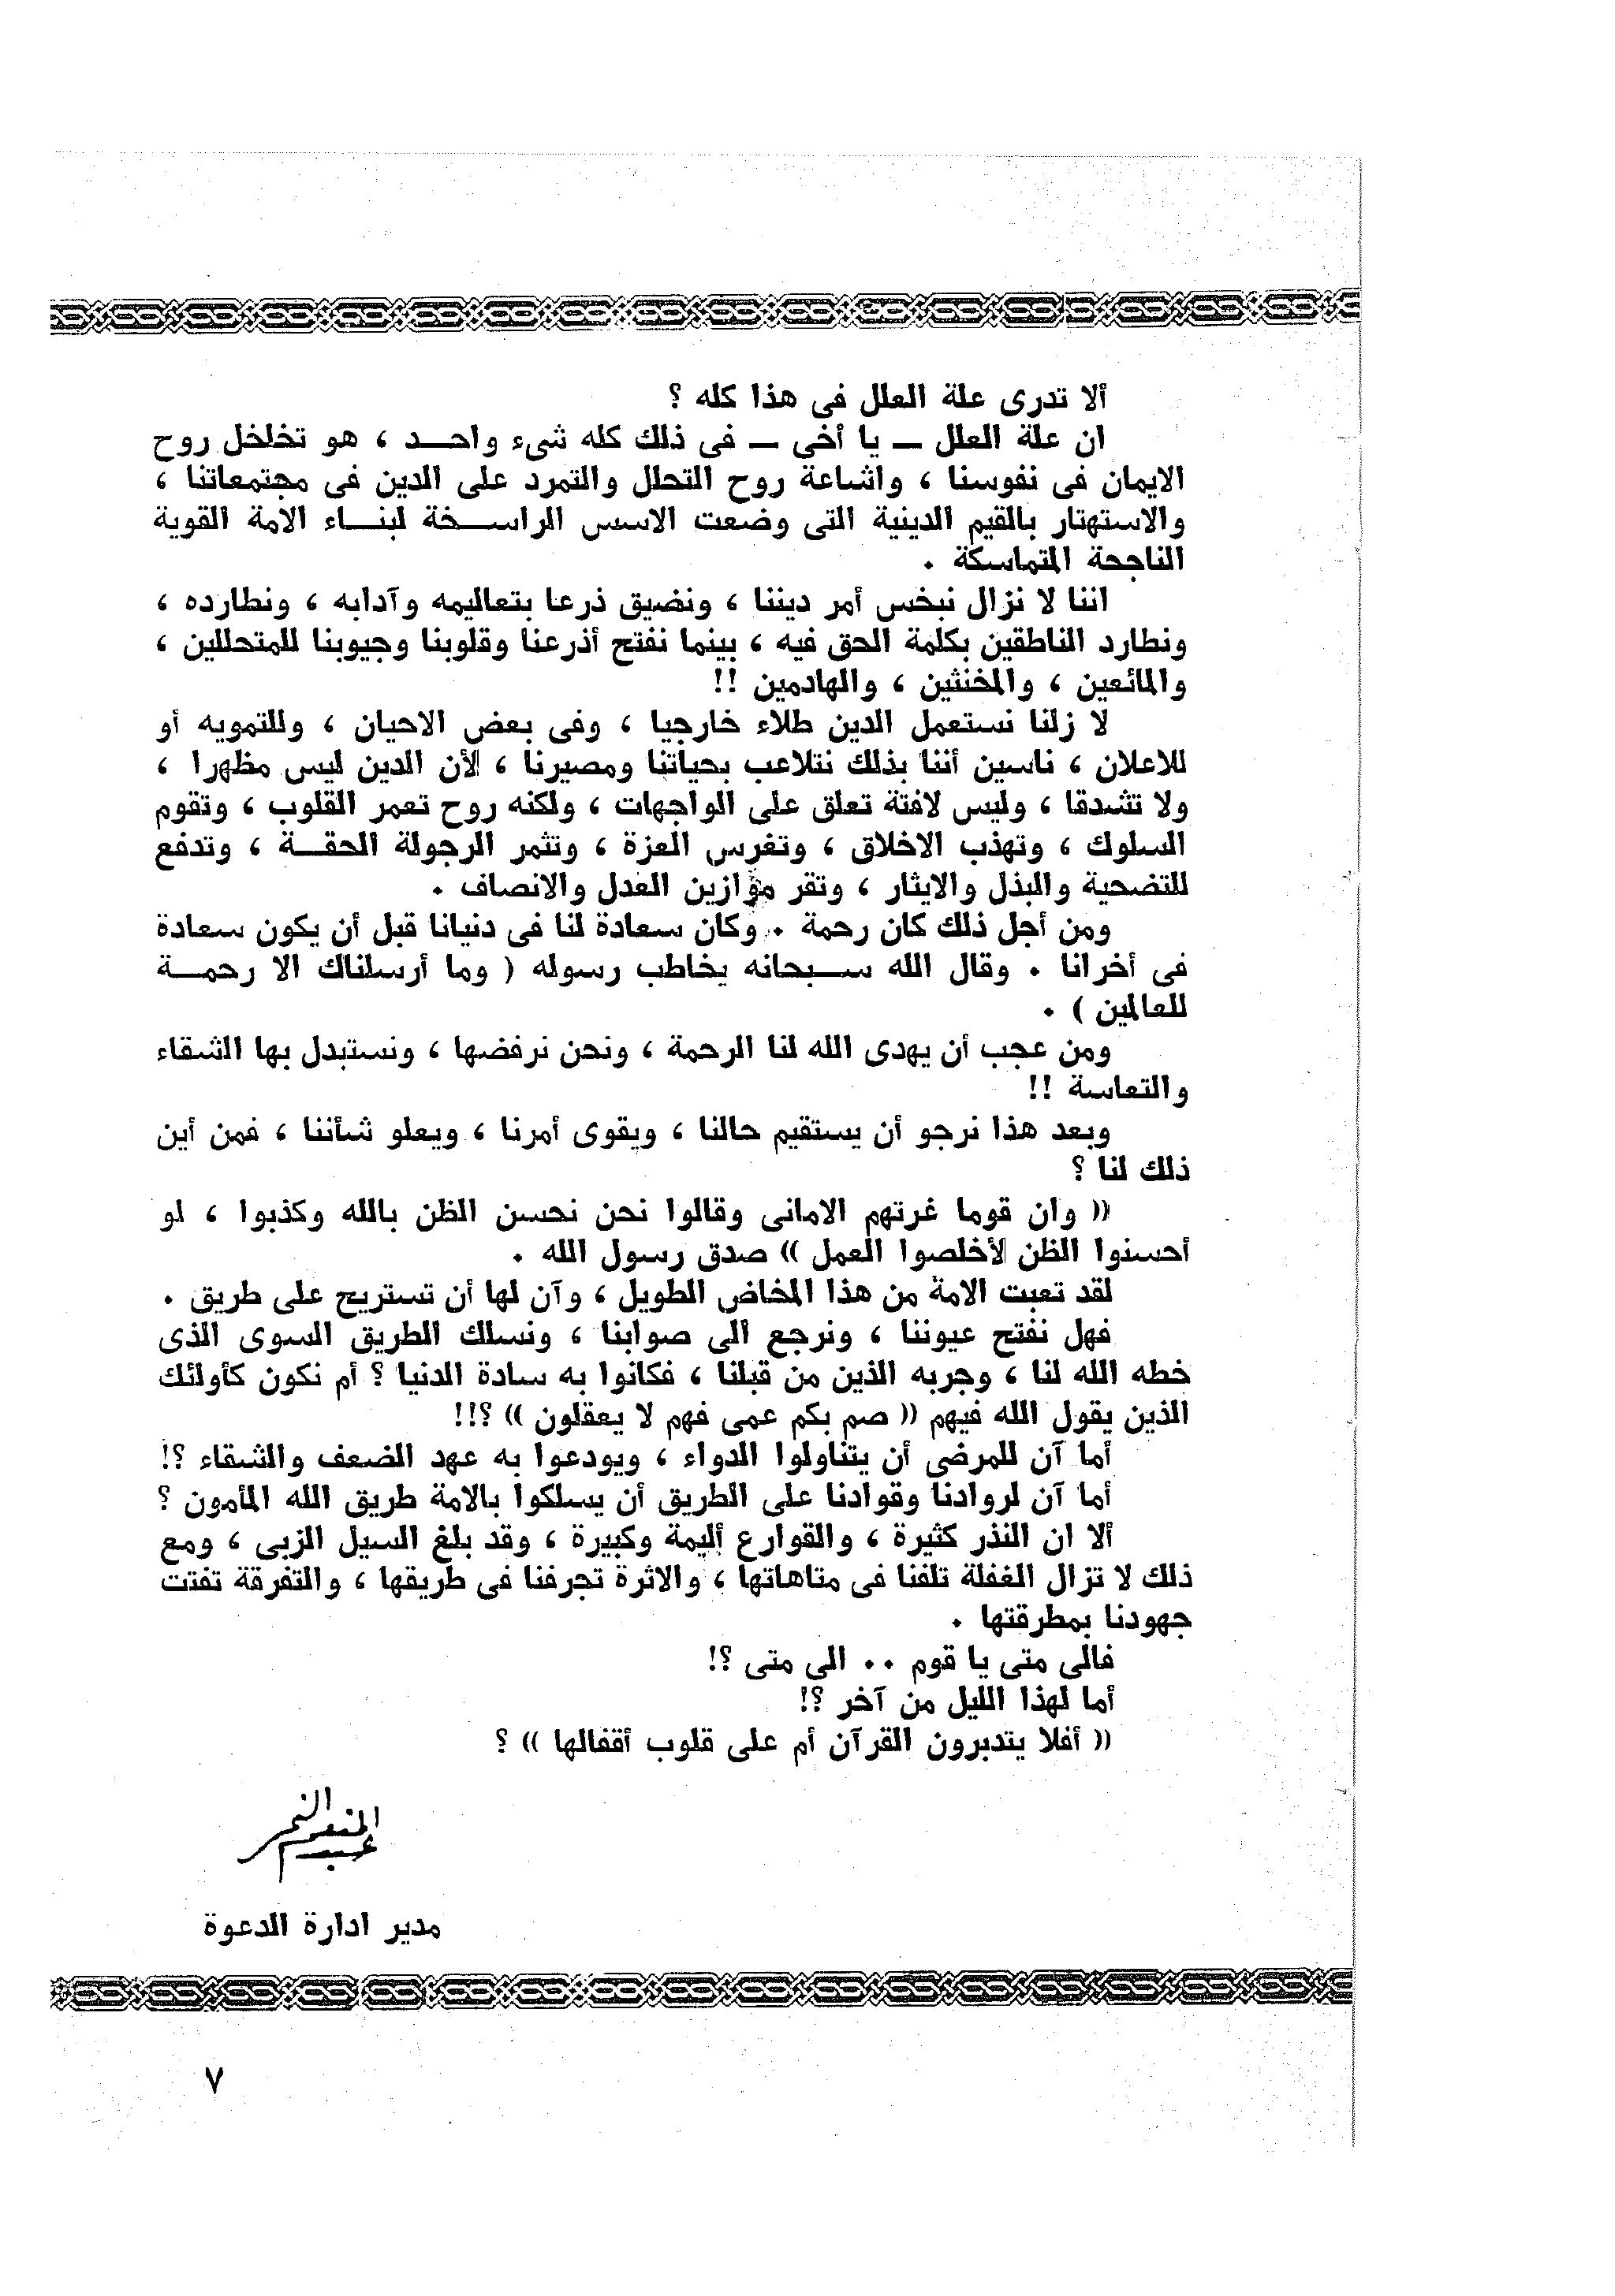 ألا تدرى علة العلل فى هذا كله ؟
ان علة العلل ــ يا أخى ــ فى ذلك كله شىء واحــد ، هو تخلخل روح
الايمان فى نفوسنا ، واشاعة روح التحلل والتمرد على الدين فى مجتمعاتنا ،
والاستهتار بالقيم الدينية التى وضعت الاسس الراســخة لبنــاء الامة القوية
الناجحة المتماسكة ٠
اننا لا نزال نبخس أمر ديننا ، ونضيق ذرعا بتعاليمه وآدابه ، ونطارده ،
ونطارد الناطقين بكلمة الحق فيه ، بينما نفتح أذرعنا وقلوبنا وجيوبنا للمتحللين ،
والمائعين ، والمخنثين ، والهادمين !!
لا زلنا نستعمل الدين طلاء خارجيا ، وفى بعض الاحيان ، وللتمويه أو
للاعلان ، ناسين أننا بذلك نتلاعب بحياتنا ومصيرنا ، لأن الدين ليس مظهرا ،
ولا تشدقا ، وليس لافتة تعلق على الواجهات ، ولكنه روح تعمر القلوب ، وتقوم
السلوك ، وتهذب الاخلاق ، وتغرس العزة ، وتثمر الرجولة الحقــة ، وتدفع
للتضحية والبذل والايثار ، وتقر موازين العدل والانصاف ٠
ومن أجل ذلك كان رحمة ٠ وكان سعادة لنا فى دنيانا قبل أن يكون سعادة
فى أخرانا ٠ وقال الله ســبحانه يخاطب رسوله ( وما أرسلناك الا رحمــة
للعالمين ) ٠
ومن عجب أن يهدى الله لنا الرحمة ، ونحن نرفضها ، ونستبدل بها الشقاء
والتعاسة !!
وبعد هذا نرجو أن يستقيم حالنا ، ويقوى أمرنا ، ويعلو شأننا ، فمن أين
ذلك لنا ؟
(( وان قوما غرتهم الامانى وقالوا نحن نحسن الظن بالله وكذبوا ، لو
أحسنوا الظن لأخلصوا العمل )) صدق رسول الله ٠
لقد تعبت الامة من هذا المخاض الطويل ، وآن لها أن تستريح على طريق ٠
فهل نفتح عيوننا ، ونرجع الى صوابنا ، ونسلك الطريق السوى الذى
خطه الله لنا ، وجربه الذين من قبلنا ، فكانوا به سادة الدنيا ؟ أم نكون كأولئك
الذين يقول الله فيهم (( صم بكم عمى فهم لا يعقلون )) ؟!!
أما آن للمرضى أن يتناولوا الدواء ، ويودعوا به عهد الضعف والشقاء ؟!
أما آن لروادنا وقوادنا على الطريق أن يسلكوا بالامة طريق الله المأمون ؟
ألا ان النذر كثيرة ، والقوارع أليمة وكبيرة ، وقد بلغ السيل الزبى ، ومع
ذلك لا تزال الغفلة تلفنا فى متاهاتها ، والاثرة تجرفنا فى طريقها ، والتفرقة تفتت
جهودنا بمطرقتها ٠
فالى متى يا قوم ٠٠ الى متى ؟!
أما لهذا الليل من آخر ؟!
(( أفلا يتدبرون القرآن أم على قلوب أقفالها )) ؟
عبد المنعم النمر
مدير ادارة الدعوة
٧